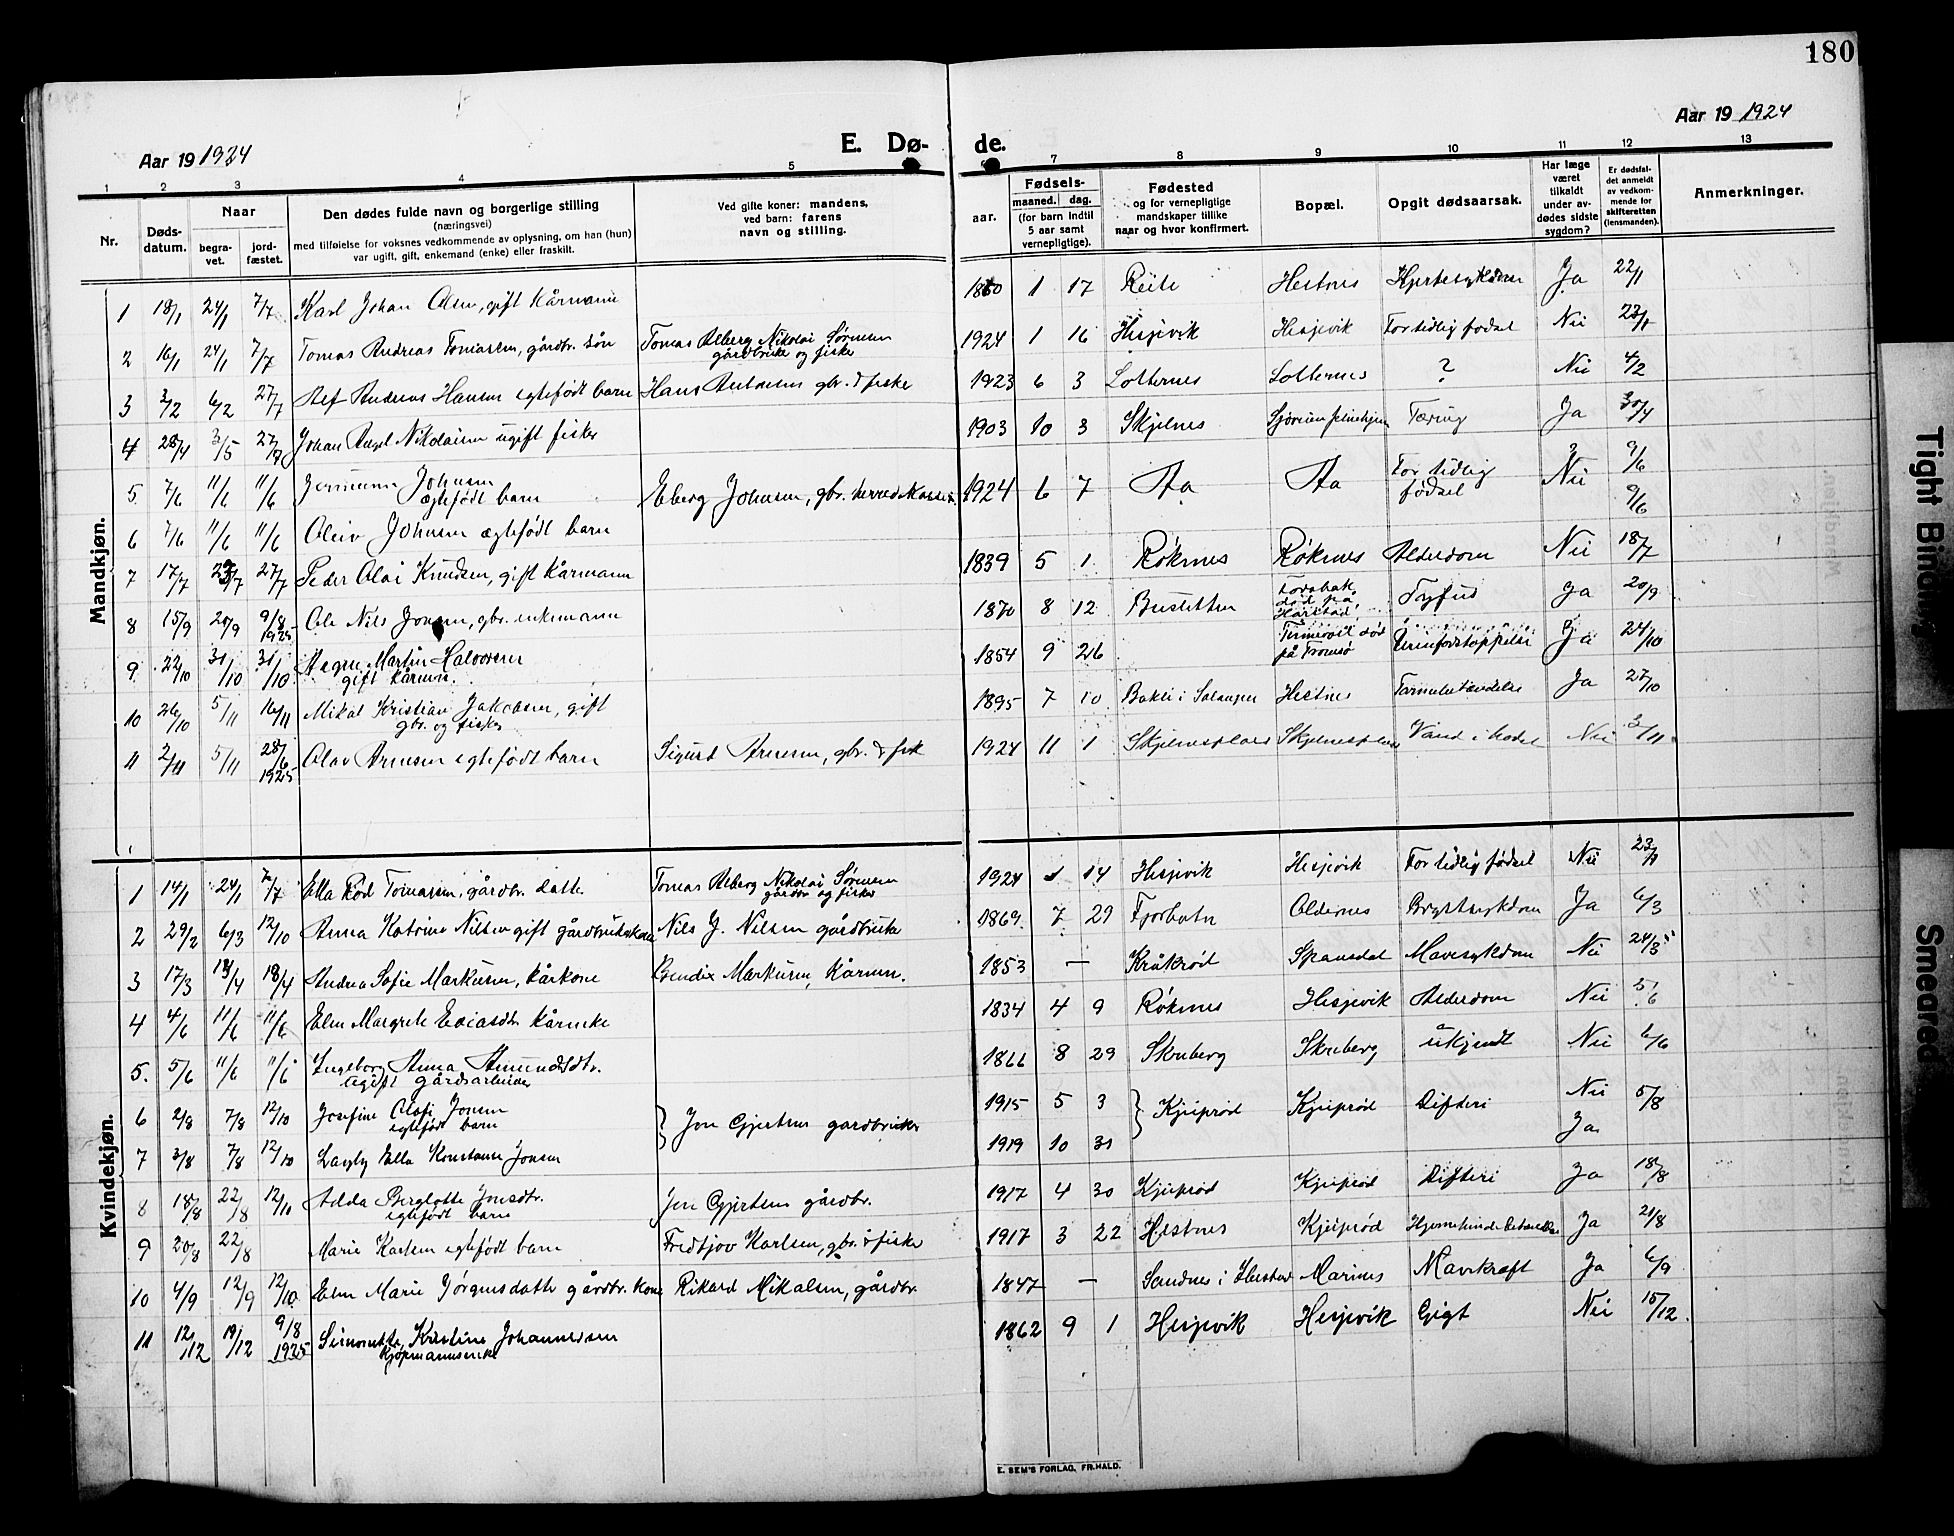 180
Aar 19 1924
E. Dø-
de.
Aar 19 1924
1 2 3 4 5 6 7 8 9 10 11 12 13
Nr.
Døds-
datum.
Naar
begra-
vet.
jord-
fæstet.
Den dødes fulde navn og borgerlige stilling
(næringsvei)
med tilføielse for voksnes vedkommende av oplysning, om han (hun)
var ugift, gift, enkemand (enke) eller fraskilt.
Ved gifte koner: mandens,
ved barn: farens
navn og stilling.
aar.
Fødsels-
maaned. dag.
(for barn indtil
5 aar samt
vernepligtige).
Fødested
og for vernepligtige
mandskaper tillike
naar og hvor konfirmert.
Bopæl.
Opgit dødsaarsak.
Har læge
været
tilkaldt
under av-
dødes sidste
sygdom?
Er dødsfal-
det anmeldt
av vedkom-
mende for
skifteretten
(lensmanden).
Anmerkninger.
Mandkjøn.
1 18/1 24/1 7/7 Karl Johan Olsen, gift kårmann 1 17 Hestnes Hjertesykdom Ja 22/1
2 16/1 24/1 7/7 Tomas Andreas Tomassen, gårdbr. søn Tomas Alberg Nikolai Sørensen 1924 1 16 Hesjevik Hesjevik For tidlig fødsel Nei 23/1
gårdbruker og fisker
3 3/2 6/2 27/7 Alf Andreas Hansen egtefødt barn Hans gbr. & fisker 1923 6 3 ? Nei 4/2
4 28/4 3/5 27/7 Johan Nikolaisen ugift fisker 1903 10 3 Skjelnes Tæring Ja 30/4
5 7/6 11/6 11/6 Johnsen Eberg Johnsen, gbr. 1924 6 7 Aa Aa For tidlig Nei 9/6
ægtefødt barn fødsel
6 7/6 11/6 11/6 Oleiv Johnsen ægtefødt barn 9/6
7 17/7 27/7 Peder Olai Knudsen, gift kårmann 1839 5 1 Røknes Røknes Alderdom Nei 18/7
8 15/9 9/8 Ole Nils Jonsen, gbr. enkemann 1870 8 12 Tyfus Ja 20/9
1925 død på
Harstad
9 22/10 31/10 31/10 Martin Halvorsen 1854 9 26 død Urinforstoppelse Ja 24/10
gift kårmn. på Tromsø
10 26/10 5/11 16/11 Mikal Kristian Jakobsen, gift 1895 7 10 Bakli i Salangen Hestnes Tarmbetændelse Ja 27/10
gbr. og fisker
11 2/11 5/11 28/6 Olav Arnesen egtefødt barn Sigurd Arnesen, gbr. & fisk 1924 11 1 Skjelnesplass Vand i hodet Nei 3/11
1925
Kvindekjøn.
1 14/1 24/1 7/7 Ella Rød Tomassen, gårdbr. datter Tomas Alberg Nikolai Sørensen 1924 1 14 Hesjevik Hesjevik For tidlig fødsel Nei 23/1
gårdbr og fisker
2 29/2 6/3 12/10 Anna Katrine Nilsen gift gårdbrukerkone Nils J. Nilsen gårdbruker 1869 7 29 Fjorbotn Oldernes Brystsykdom Ja 6/3
3 17/3 18/4 Andrea Sofie Markusen, kårkone Bendix Markusen, Kårmn. 1853 — Kråkrød Spansdal Mavesykdom Nei 24/3
4 4/6 11/6 11/6 Elen Margrete Eliasdtr. kårenke 1834 4 9 Røknes Hesjevik Alderdom Nei 5/6
5. 5/6 11/6 11/6 Ingeborg Anna Amundsdtr. 1866 8 29 Skreberg ukjendt Nei 6/6
ugift gårdsarbeider
6 2/8 7/8 12/10 Josefine Olafi Jonsen } Jon Gjertsen gardbruker 1915 5 3 } Kjeiprød Kjeiprød Difteri Nei 5/8
egtefødt barn
7 3/8 7/8 12/10 Ella Konstanse Jonsen 1919 10 31 Ja
8 18/8 22/8 12/10 Alda Berglotte Jonsdtr. Jon Gjertsen gårdbr. 1917 4 30 Kjeiprød Kjeiprød Difteri Ja 18/8
egtefødt barn
9 20/8 22/8 Marie Karlsen egtefødt barn Fredtjov Karlsen, gbr. & fisker 1917 3 22 Hestnes Kjeiprød Hjernehindebetændelse Ja 21/8
10 4/9 12/9 12/10 Elen Marie Jørgensdatter gårdbr. kone Rikard Mikalsen, gårdbr. 1847 — Sandnes i Ibestad Marines Mavekræft Ja 6/9
11 12/12 19/12 9/8 Simonette Kristine Johannessen 1862 9 1 Hesjevik Hesjevik Gigt Nei 15/12
1925 Kjøpmannsenke
E. SEM'S FORLAG, FR.HALD.
Tight Binding
Smeared